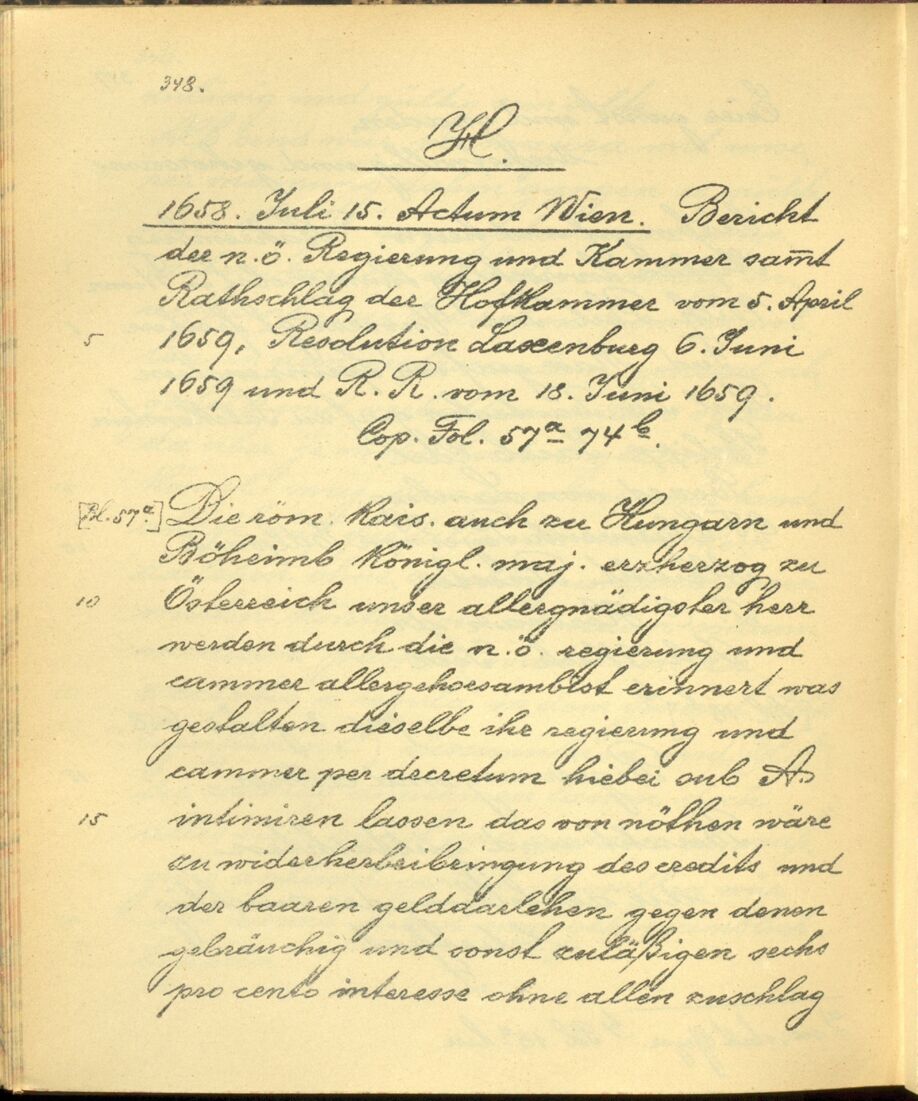 348.
H.
1658. Juli 15. Actum Wien. Bericht
der n.ö. Regierung und Kammer sam̄t
Rathschlag der Hofkammer vom 5. April
5 1659, Resolution Laxenburg 6. Juni
1659 und R. R. vom 18. Juni 1659.
Cop. Fol. 57a 74b.
[Bl. 57a.] Die röm. kais. auch zu Hungarn und
Böheimb königl. maj. erzherzog zu
10 Österreich unser allergnädigster herr
werden durch die n.ö. regierung und
cammer allergehorsambist erinnert was
gestalten dieselbe ihr regierung und
cammer per decretum hiebei sub A.
15 intimiren lassen das von nöthen wäre
zu widerherbeibringung des credits und
der baaren gelddarlehen gegen denen
gebräuchig und sonst zuläßigen sechs
pro cento interesse ohne allen zuschlag